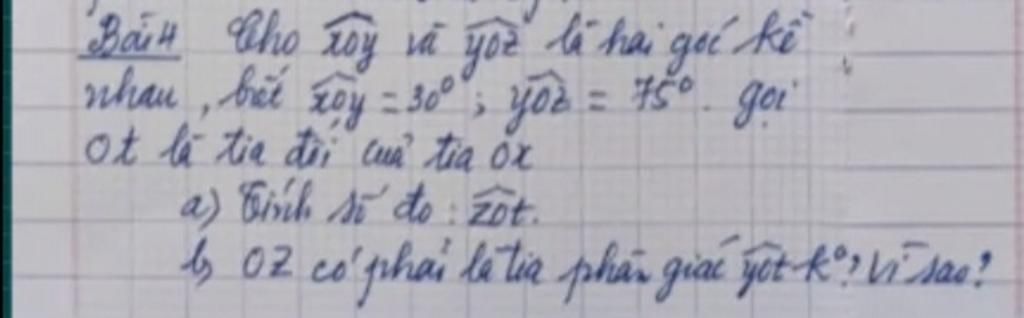 Bài 4 Cho xOy và yOz là hai góc kề
nhau, biết xOy = 30°; yOz = 75°. gọi
Ot là tia đối của tia Ox
a) Tính số đo: zOt.
b) Oz có phải là tia phân giác yOt k°? Vì sao?